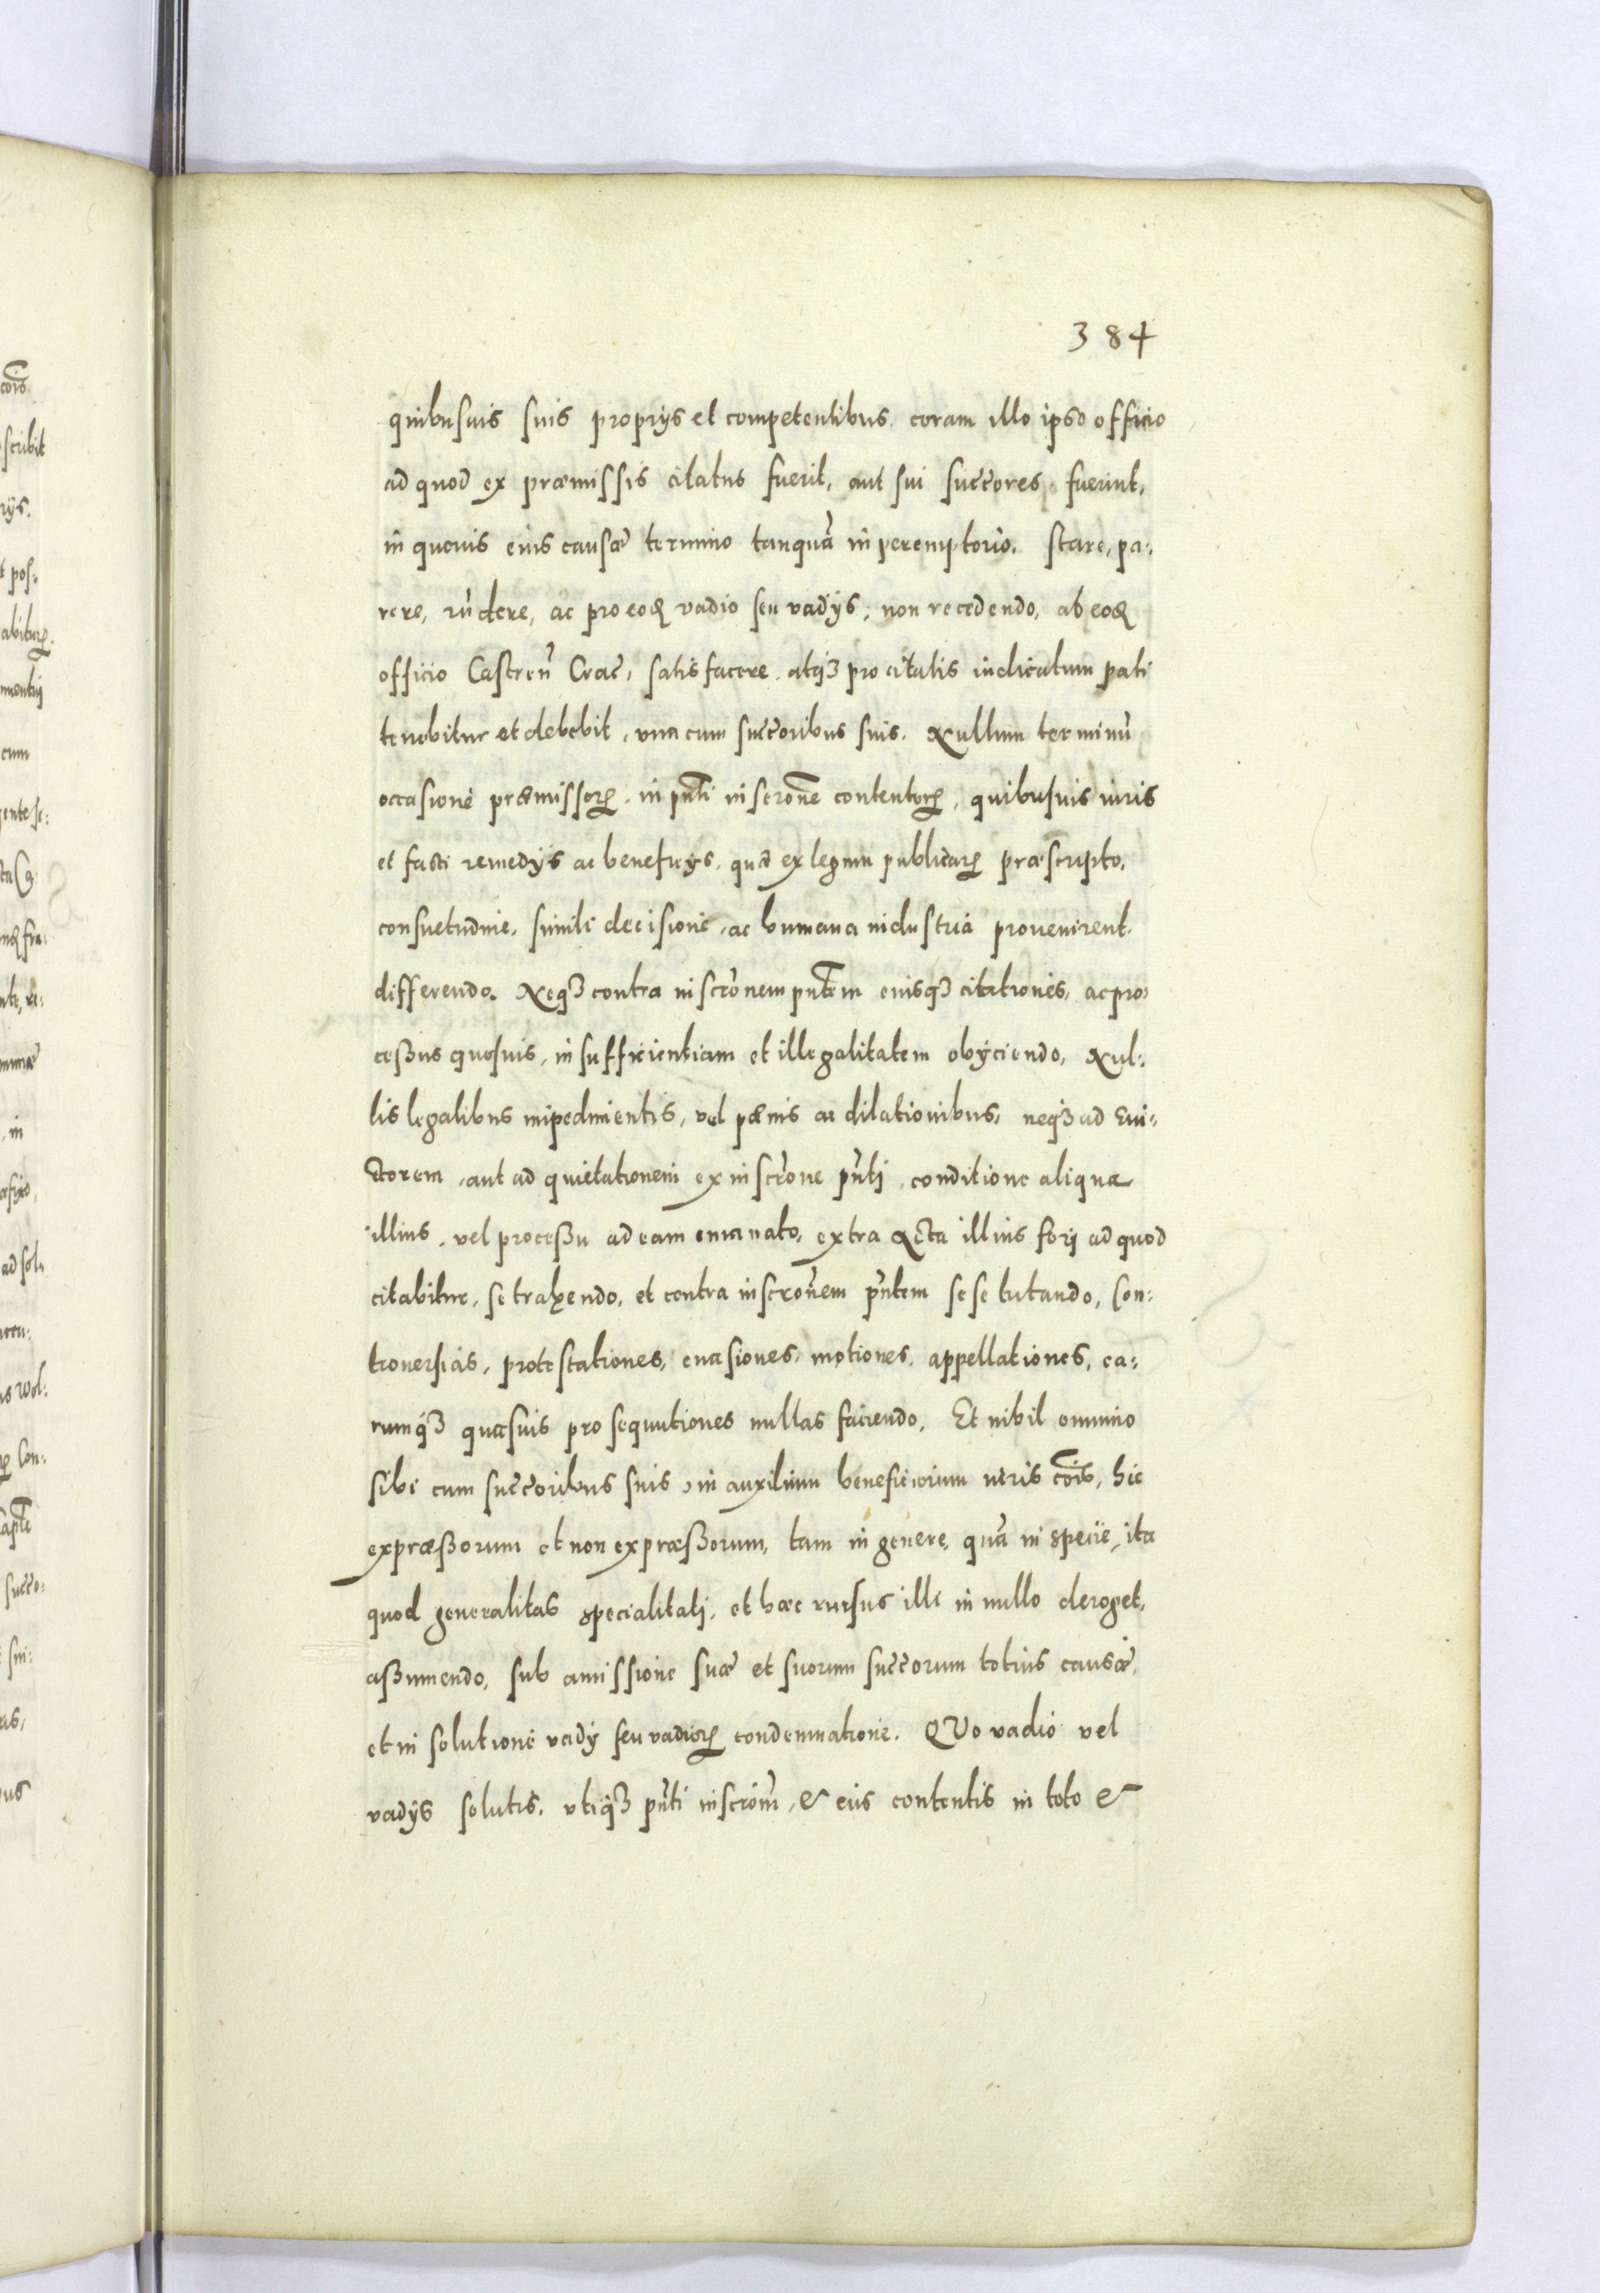 384
quibusuis suis proprijs et competentibus coram illo ipso officio
ad quod ex præmissis citatus fuerit, aut sui succores fuerint,
in quouis eius causæ termino tanquā in peremptorio. stare, pa:
rere, rūdere, ac pro eod vadio seu vadijs, non recedendo, ab eod
officio Castreñ Crac, satisfacere atq3 pro citatis iudicatum pati
tenebitur et debebit, vna cum succoribus suis. Nullum terminū
occasione præmissor, in pñti inscrone contentor, quibusuis iuris
et facti remedijs ac beneficijs, quæ ex legum publicar præscripto,
consuetudine, simili decisione, ac humana industria prouenirent
differendo. Neq3 contra inscronem pntem eiusq3 citationes, ac pro
ceßus quosuis, insufficientiam et illegalitatem obijciendo, Nul:
lis legalibus impedimentis, vel pænis ac dilationibus, neq3 ad Eui:
ctorem, aut ad quietationem ex inscrone pñti, conditione aliqua
illius, vel proceßu ad eam emanato, extra Acta illius fori ad quod
citabitur, se trahendo, et contra inscronem pñtem sese tutando, Con:
trouersias, protestationes, euasiones, motiones, appellationes, ea:
rumq3 quasuis prosequutiones nullas faciendo, Et nihil omnino
sibi cum succoribus suis, in auxilium beneficiorum iuris cōis, hic
expræßorum et non expræßorum, tam in genere, quā in specie, ita
quod generalitas specialitati, et hæc rursus illi in nullo deroget,
aßumendo, sub amissione suæ et suorum succorum totius causæ,
et in solutione vadij seu vadior condemnatione. QVo vadio vel
vadijs solutis, vtiq3 pñti inscroni, & eius contentis in toto &